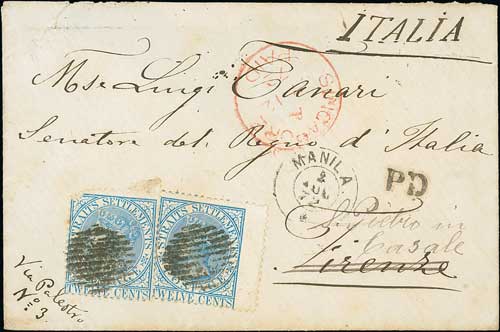 ITALIA
Luigi Canari
Senatore del Regno d'Italia
MANILA
2
JUL
PD
S. Pietro in
Casale
Firenze
STRAITS SETTLEMENTS
TWELVE CENTS
STRAITS SETTLEMENTS
TWELVE CENTS
Via Palestro
Nº 3.